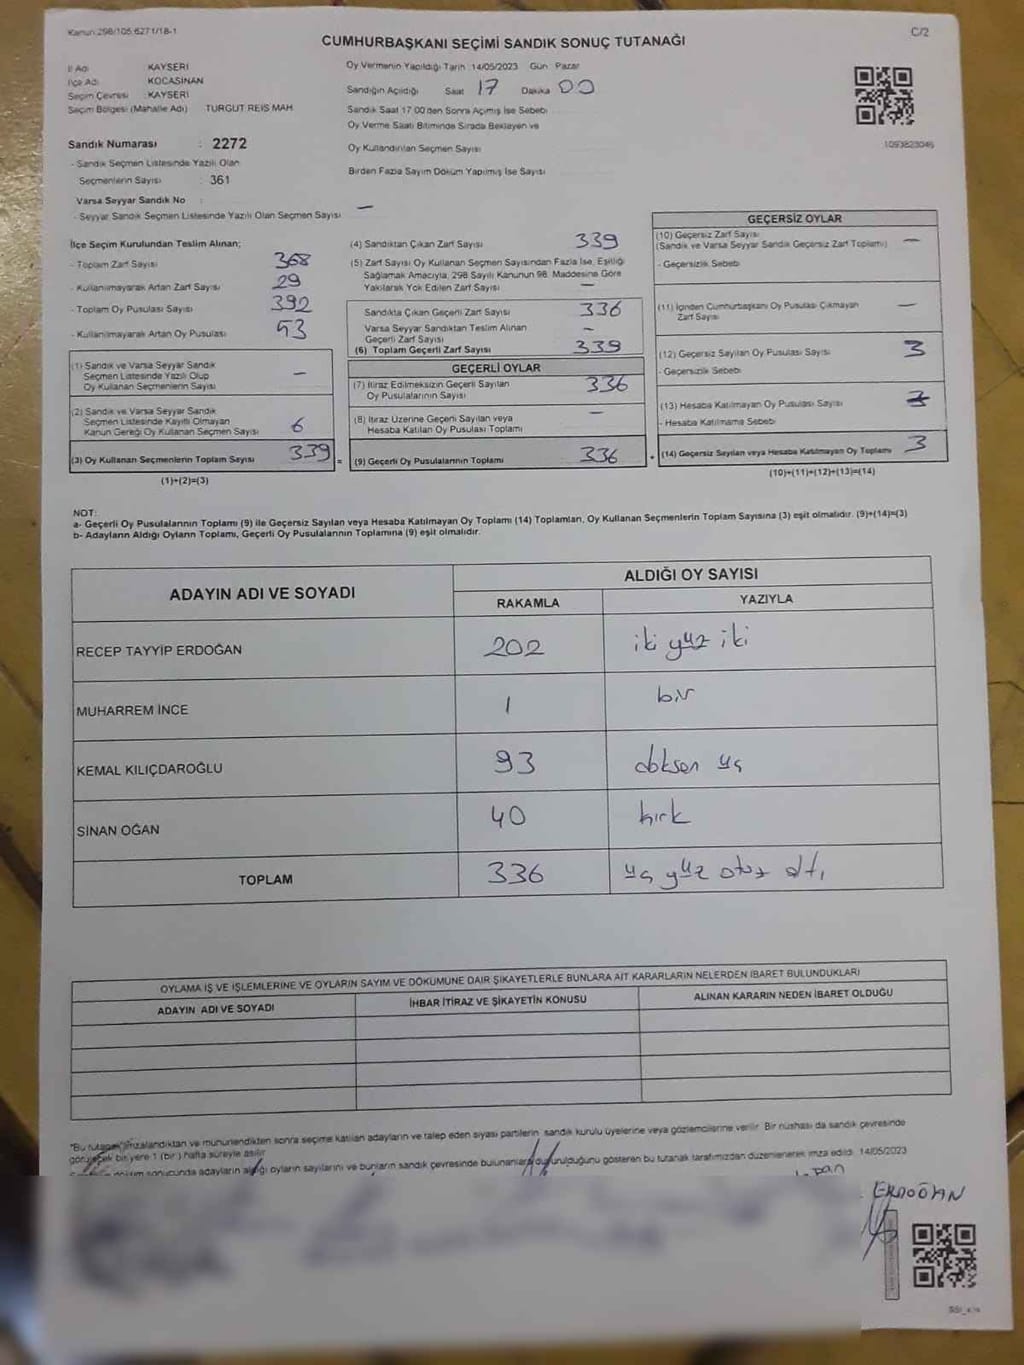 Kanun:298/105,6271/18-1
C/2
CUMHURBAŞKANI SEÇİMİ SANDIK SONUÇ TUTANAĞI
İl Adı KAYSERİ
İlçe Adı KOCASİNAN
Seçim Çevresi : KAYSERİ
Seçim Bölgesi (Mahalle Adı) TURGUT REİS MAH
Sandık Numarası : 2272
- Sandık Seçmen Listesinde Yazılı Olan
Seçmenlerin Sayısı : 361
Varsa Seyyar Sandık No :
- Seyyar Sandık Seçmen Listesinde Yazılı Olan Seçmen Sayısı —
Oy Vermenin Yapıldığı Tarih :14/05/2023 Gün : Pazar
Sandığın Açıldığı Saat 17 Dakika 00
Sandık Saat 17:00'den Sonra Açılmış İse Sebebi
Oy Verme Saati Bitiminde Sırada Bekleyen ve
Oy Kullandırılan Seçmen Sayısı
Birden Fazla Sayım Döküm Yapılmış İse Sayısı
1093823046
İlçe Seçim Kurulundan Teslim Alınan;
- Toplam Zarf Sayısı 368
- Kullanılmayarak Artan Zarf Sayısı 29
- Toplam Oy Pusulası Sayısı 392
- Kullanılmayarak Artan Oy Pusulası 53
(1) Sandık ve Varsa Seyyar Sandık
Seçmen Listesinde Yazılı Olup
Oy Kullanan Seçmenlerin Sayısı —
(2) Sandık ve Varsa Seyyar Sandık
Seçmen Listesinde Kayıtlı Olmayan
Kanun Gereği Oy Kullanan Seçmen Sayısı 6
(3) Oy Kullanan Seçmenlerin Toplam Sayısı 339 =
(1)+(2)=(3)
(4) Sandıktan Çıkan Zarf Sayısı 339
(5) Zarf Sayısı Oy Kullanan Seçmen Sayısından Fazla İse, Eşitliği
Sağlamak Amacıyla, 298 Sayılı Kanunun 98. Maddesine Göre
Yakılarak Yok Edilen Zarf Sayısı —
Sandıkta Çıkan Geçerli Zarf Sayısı 336
Varsa Seyyar Sandıktan Teslim Alınan
Geçerli Zarf Sayısı —
(6) Toplam Geçerli Zarf Sayısı 339
GEÇERLİ OYLAR
(7) İtiraz Edilmeksizin Geçerli Sayılan
Oy Pusulalarının Sayısı 336
(8) İtiraz Üzerine Geçerli Sayılan veya
Hesaba Katılan Oy Pusulası Toplamı —
(9) Geçerli Oy Pusulalarının Toplamı 336 +
GEÇERSİZ OYLAR
(10) Geçersiz Zarf Sayısı
(Sandık ve Varsa Seyyar Sandık Geçersiz Zarf Toplamı) —
- Geçersizlik Sebebi
(11) İçinden Cumhurbaşkanı Oy Pusulası Çıkmayan
Zarf Sayısı —
(12) Geçersiz Sayılan Oy Pusulası Sayısı 3
- Geçersizlik Sebebi
(13) Hesaba Katılmayan Oy Pusulası Sayısı
- Hesaba Katılmama Sebebi
(14) Geçersiz Sayılan veya Hesaba Katılmayan Oy Toplamı 3
(10)+(11)+(12)+(13)=(14)
NOT:
a- Geçerli Oy Pusulalarının Toplamı (9) ile Geçersiz Sayılan veya Hesaba Katılmayan Oy Toplamı (14) Toplamları, Oy Kullanan Seçmenlerin Toplam Sayısına (3) eşit olmalıdır. (9)+(14)=(3)
b- Adayların Aldığı Oyların Toplamı, Geçerli Oy Pusulalarının Toplamına (9) eşit olmalıdır.
ADAYIN ADI VE SOYADI
ALDIĞI OY SAYISI
RAKAMLA YAZIYLA
RECEP TAYYİP ERDOĞAN 202 iki yüz iki
MUHARREM İNCE 1 bir
KEMAL KILIÇDAROĞLU 93 doksen üç
SİNAN OĞAN 40 kırk
TOPLAM 336 üç yüz otuz altı
OYLAMA İŞ VE İŞLEMLERİNE VE OYLARIN SAYIM VE DÖKÜMÜNE DAİR ŞİKAYETLERLE BUNLARA AİT KARARLARIN NELERDEN İBARET BULUNDUKLARI
ADAYIN ADI VE SOYADI
İHBAR İTİRAZ VE ŞİKAYETİN KONUSU
ALINAN KARARIN NEDEN İBARET OLDUĞU
"Bu tutanak imzalandıktan ve mühürlendikten sonra seçime katılan adayların ve talep eden siyasi partilerin sandık kurulu üyelerine veya gözlemcilerine verilir. Bir nüshası da sandık çevresinde
görülecek bir yere 1 (bir) hafta süreyle asılır.
döküm sonucunda adayların aldığı oyların sayılarını ve bunların sandık çevresinde bulunanlara duyurulduğunu gösteren bu tutanak tarafımızdan düzenlenerek imza edildi. 14/05/2023
ERDOĞAN